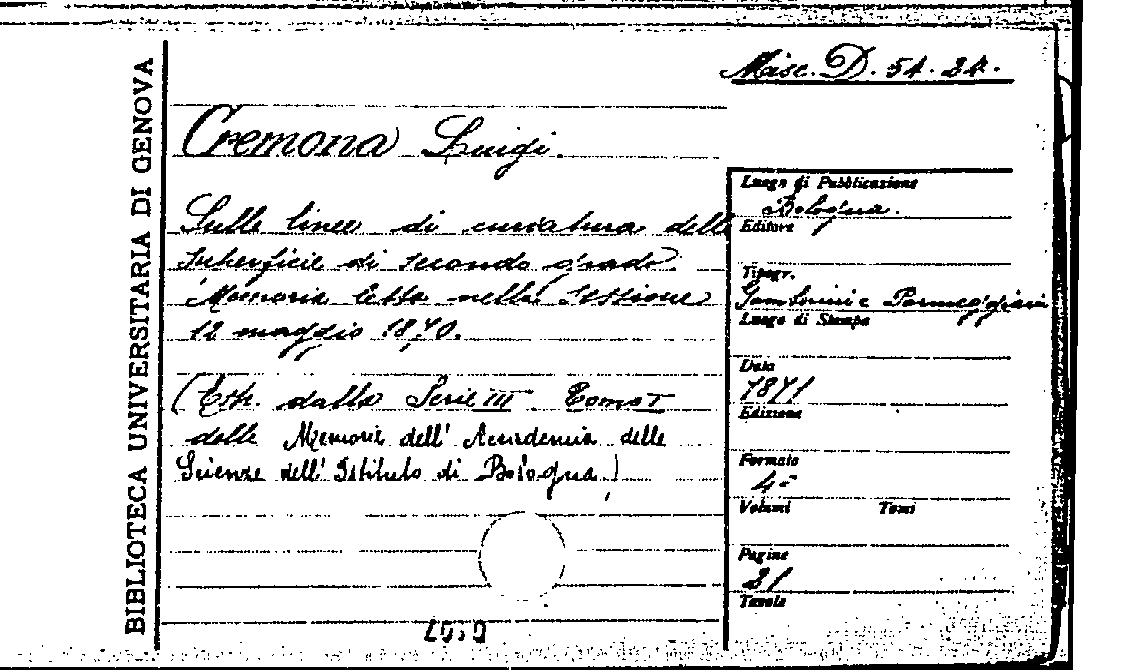 Misc. D. 54. 24.
BIBLIOTECA UNIVERSITARIA DI GENOVA
Cremona Luigi.
Sulle linee di curvatura delle
superficie di secondo grado.
Memoria letta nella sessione
12 maggio 1870.
(Estr. dalla Serie III Tomo I
delle Memorie dell'Accademia delle
Scienze dell'Istituto di Bologna)
Luogo di Pubblicazione
Bologna.
Editore
Tipogr.
Gamberini e Parmeggiani
Luogo di Stampa
Data
1871
Edizione
Formato
4°
Volumi Tomi
Pagine
21
Tavole